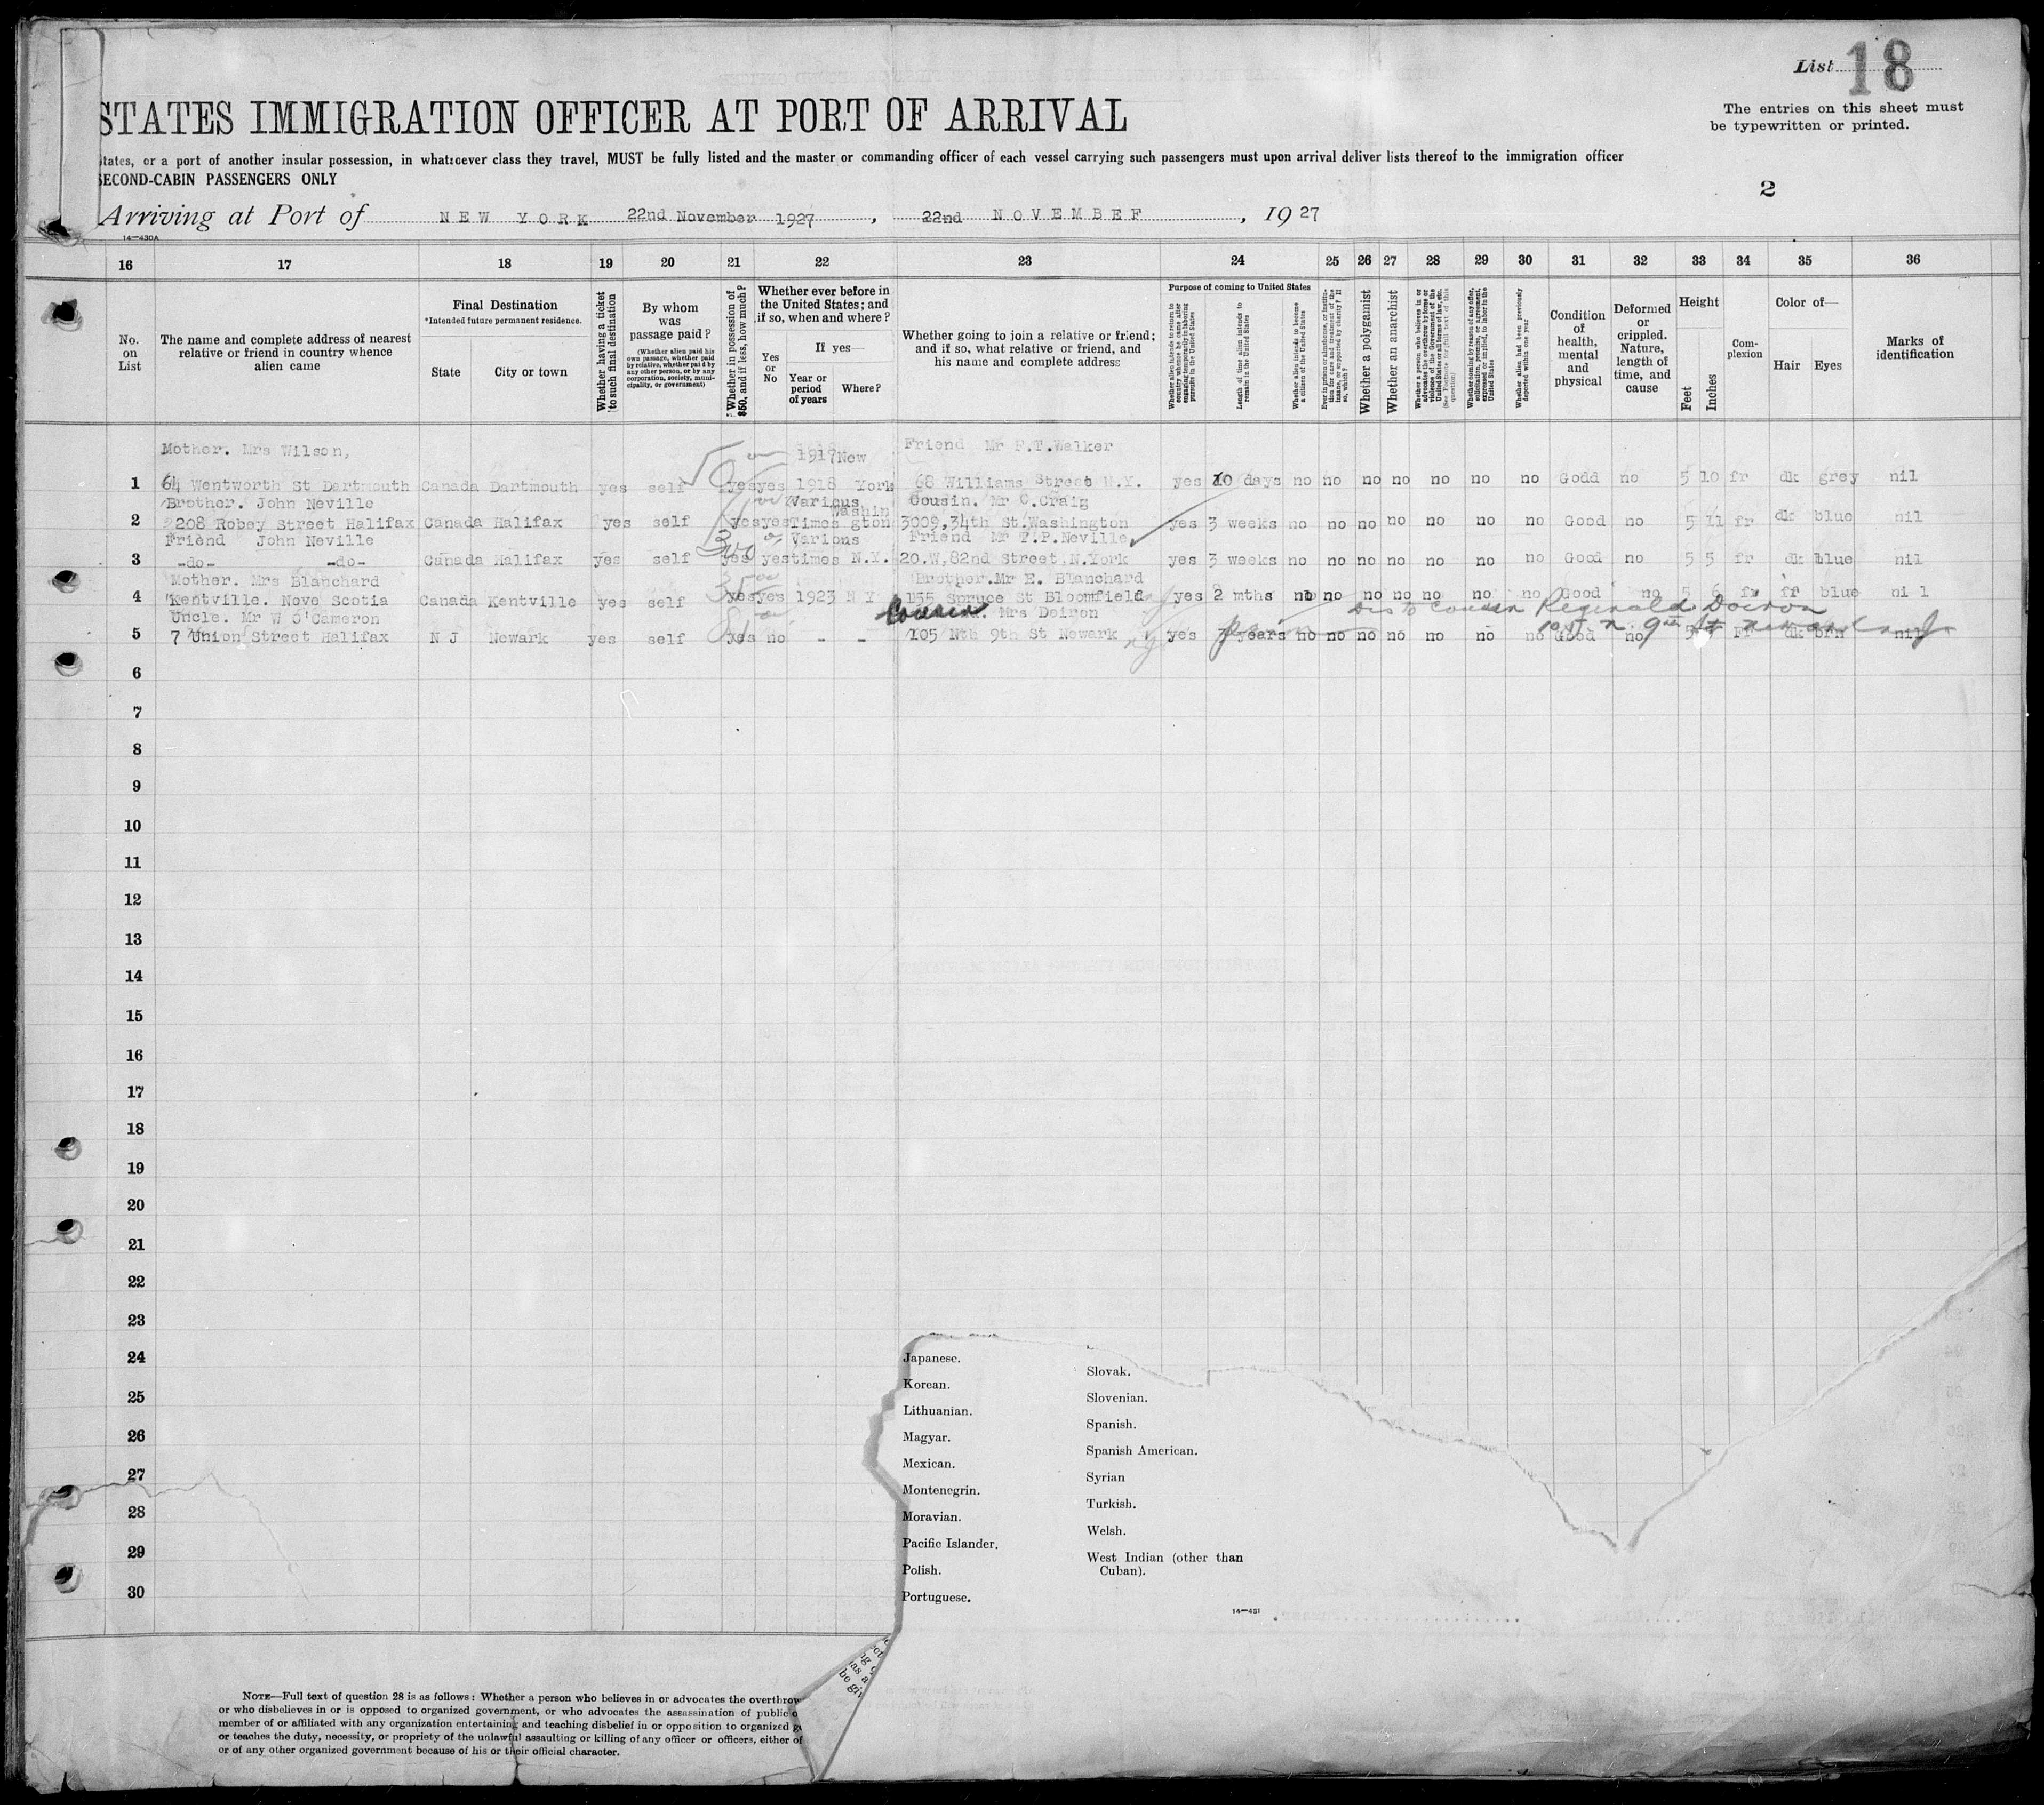 List 18
The entries on this sheet must
be typewritten or printed.
STATES IMMIGRATION OFFICER AT PORT OF ARRIVAL
States, or a port of another insular possession, in whatsoever class they travel, MUST be fully listed and the master or commanding officer of each vessel carrying such passengers must upon arrival deliver lists thereof to the immigration officer
SECOND-CABIN PASSENGERS ONLY
2
Arriving at Port of NEW YORK 22nd November 1927, 22nd NOVEMBER, 1927
14—430A
16 17 18 19 20 21 22 23 24 25 26 27 28 29 30 31 32 33 34 35 36
No. on List
The name and complete address of nearest relative or friend in country whence alien came
Final Destination
*Intended future permanent residence.
State
City or town
Whether having a ticket to such final destination
By whom was passage paid?
(Whether alien paid his own passage, whether paid by relative, whether paid by any other person, or by any corporation, society, municipality, or government)
Whether in possession of $50, and if less, how much?
Whether ever before in the United States; and if so, when and where?
Yes or No
If yes—
Year or period of years
Where?
Whether going to join a relative or friend; and if so, what relative or friend, and his name and complete address
Purpose of coming to United States
Whether alien intends to return to country whence he came after engaging temporarily in laboring pursuits in the United States
Length of time alien intends to remain in the United States
Whether alien intends to become a citizen of the United States
Ever in prison or almshouse, or institution for care and treatment of the insane, or supported by charity? If so, which?
Whether a polygamist
Whether an anarchist
Whether a person who believes in or advocates the overthrow by force or violence of the Government of the United States or all forms of law, etc. (See Footnote for full text of this question)
Whether coming by reason of any offer, solicitation, promise, or agreement, expressed or implied, to labor in the United States
Whether alien had been previously deported within one year
Condition of health, mental and physical
Deformed or crippled. Nature, length of time, and cause
Height
Feet
Inches
Complexion
Color of—
Hair
Eyes
Marks of identification
Mother. Mrs Wilson, 1917 New Friend Mr F.T.Walker
1 64 Wentworth St Dartmouth Canada Dartmouth yes self yes yes 1918 York 68 Williams Street N.Y. yes 10 days no no no no no no no Godd no 5 10 fr dk grey nil
Brother. John Neville Various Washin Cousin. Mr C.Craig
2 208 Robey Street Halifax Canada Halifax yes self yes yes Times gton 3009,34th St.Washington yes 3 weeks no no no no no no no Good no 5 11 fr dk blue nil
Friend John Neville Various Friend Mr T.P.Neville
3 -do- -do- Canada Halifax yes self yes yes times N.Y. 20.W,82nd Street,N.York yes 3 weeks no no no no no no no Good no 5 5 fr dk blue nil
Mother. Mrs Blanchard Brother.Mr E. Blanchard
4 Kentville. Nove Scotia Canada Kentville yes self yes yes 1923 N Y 155 Spruce St Bloomfield yes 2 mths no no no no no no no Good no 5 6 fr fr blue nil
Uncle. Mr W O'Cameron Cousin Mrs Doiron Dis to cousin Reginald Doiron
105 N. 9th St Newark NJ
5 7 Union Street Halifax N J Newark yes self yes no - - 105 Nth 9th St Newark yes years no no no no no no no Good no 5 Fr dk brn nil
6
7
8
9
10
11
12
13
14
15
16
17
18
19
20
21
22
23
24
25
26
27
28
29
30
Japanese.
Korean.
Lithuanian.
Magyar.
Mexican.
Montenegrin.
Moravian.
Pacific Islander.
Polish.
Portuguese.
Slovak.
Slovenian.
Spanish.
Spanish American.
Syrian
Turkish.
Welsh.
West Indian (other than
Cuban).
14—431
NOTE—Full text of question 28 is as follows: Whether a person who believes in or advocates the overthrow
or who disbelieves in or is opposed to organized government, or who advocates the assassination of public o
member of or affiliated with any organization entertaining and teaching disbelief in or opposition to organized g
or teaches the duty, necessity, or propriety of the unlawful assaulting or killing of any officer or officers, either of
or of any other organized government because of his or their official character.